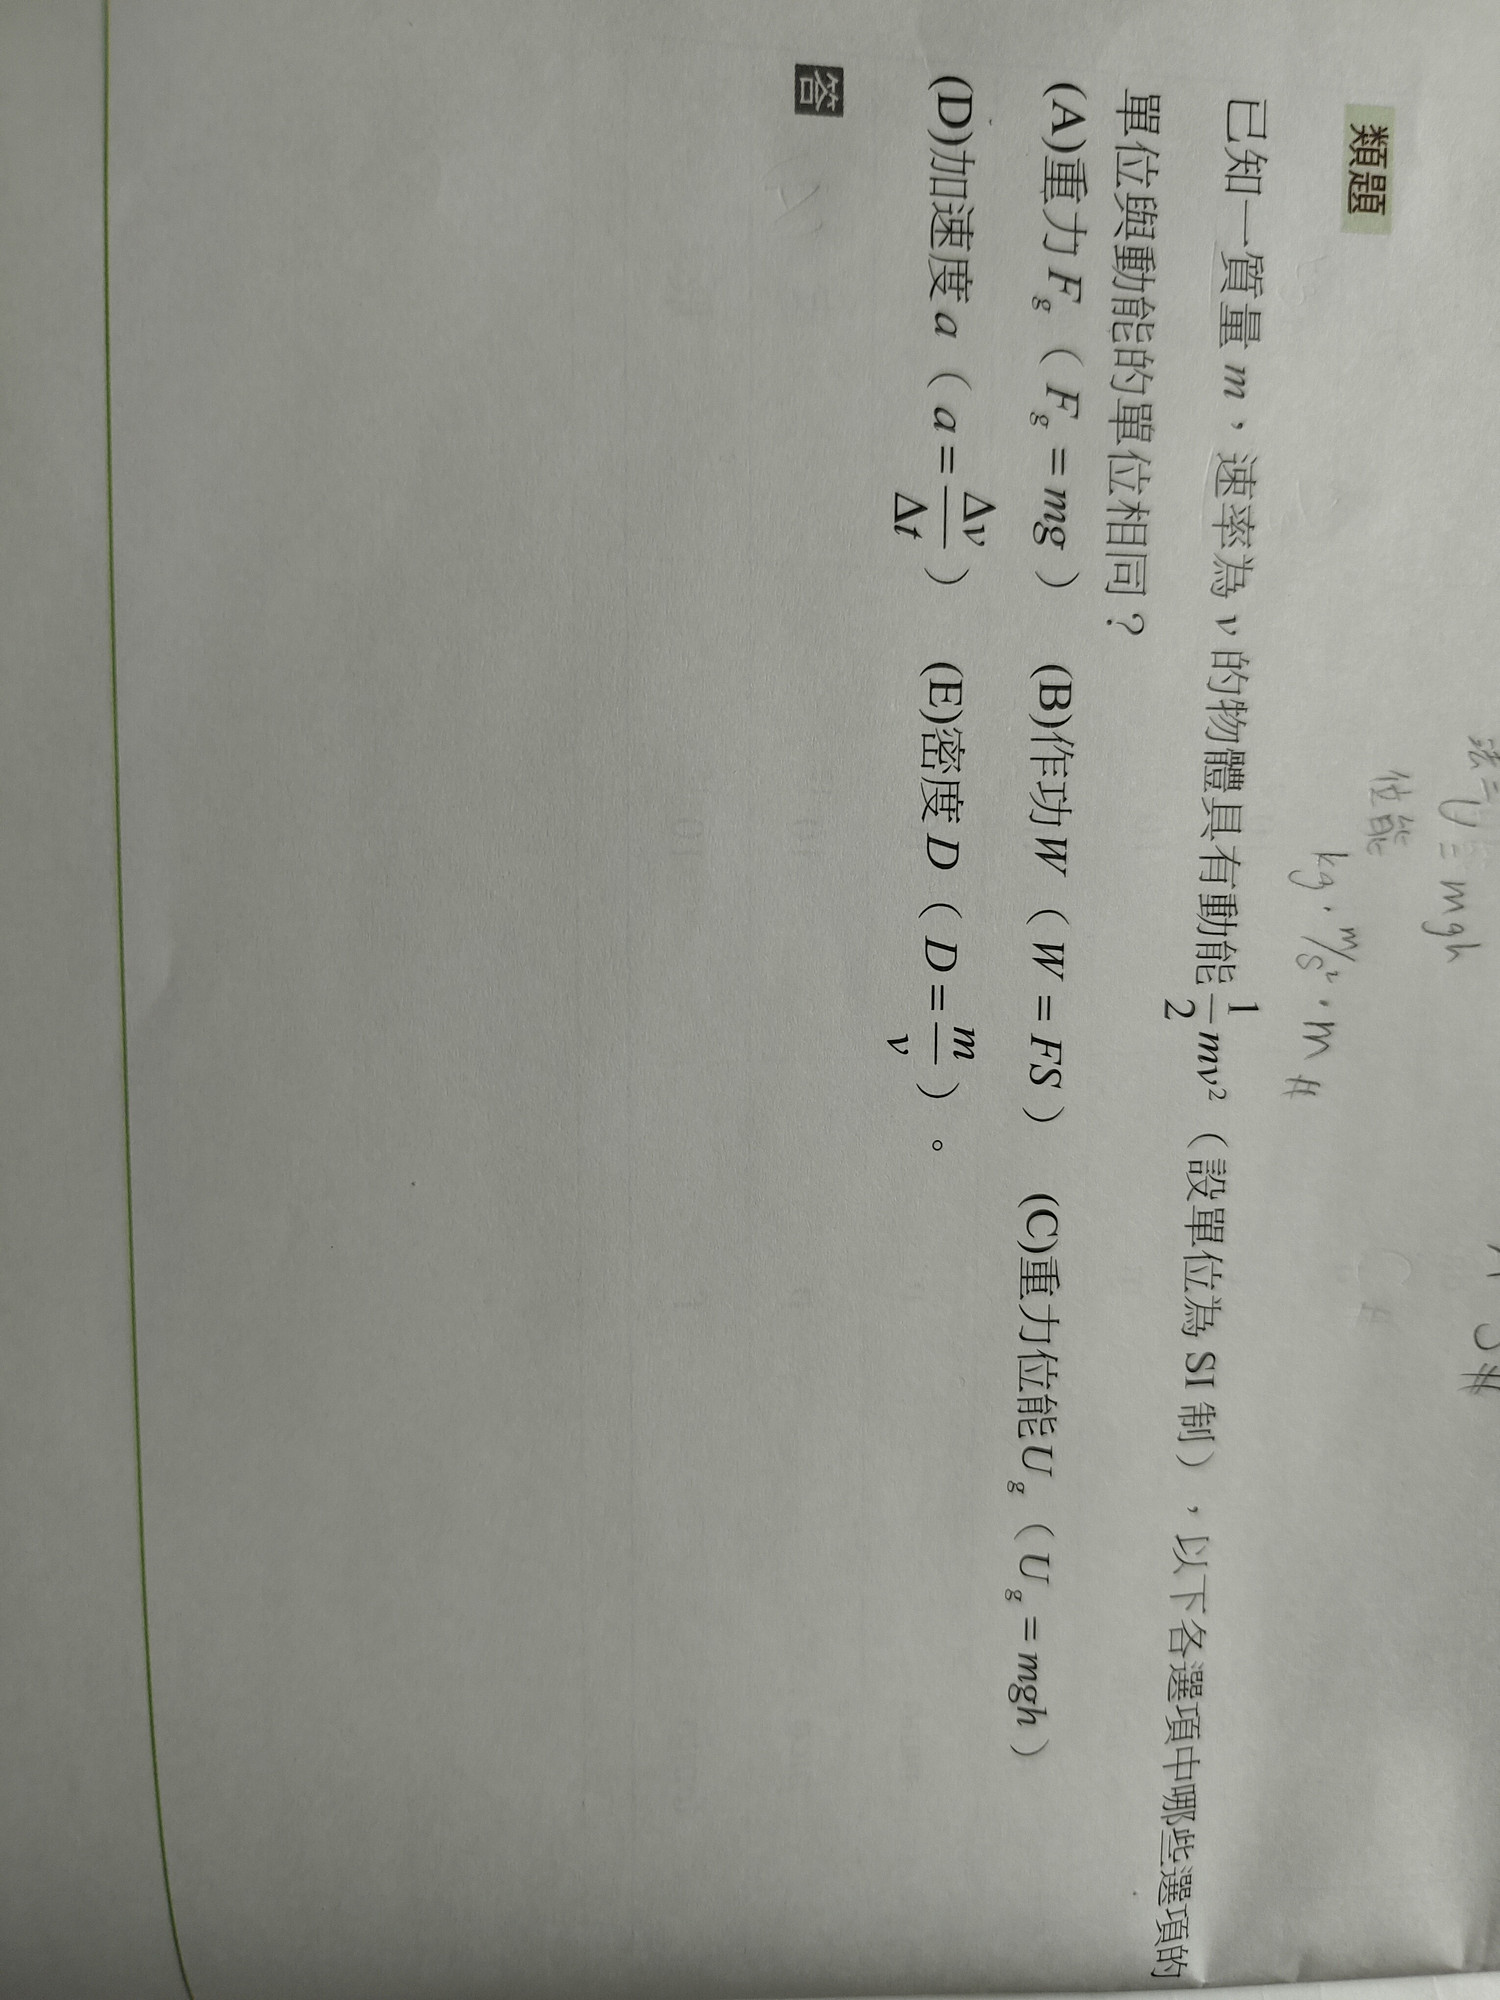 U = mgh
位能
kg · m/s² · m #
類題
已知一質量 m，速率為 v 的物體具有動能 1/2 mv²（設單位為 SI 制），以下各選項中哪些選項的
單位與動能的單位相同？
(A)重力 F_g（F_g = mg） (B)作功 W（W = FS） (C)重力位能 U_g（U_g = mgh）
(D)加速度 a（a = Δv/Δt） (E)密度 D（D = m/v）。
答